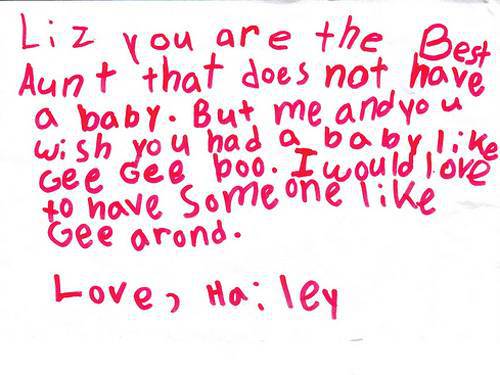 Liz you are the Best
Aunt that does not have
a baby. But me and you
wish you had a baby like
Gee Gee boo. I would love
to have someone like
Gee arond.
Love, Hailey